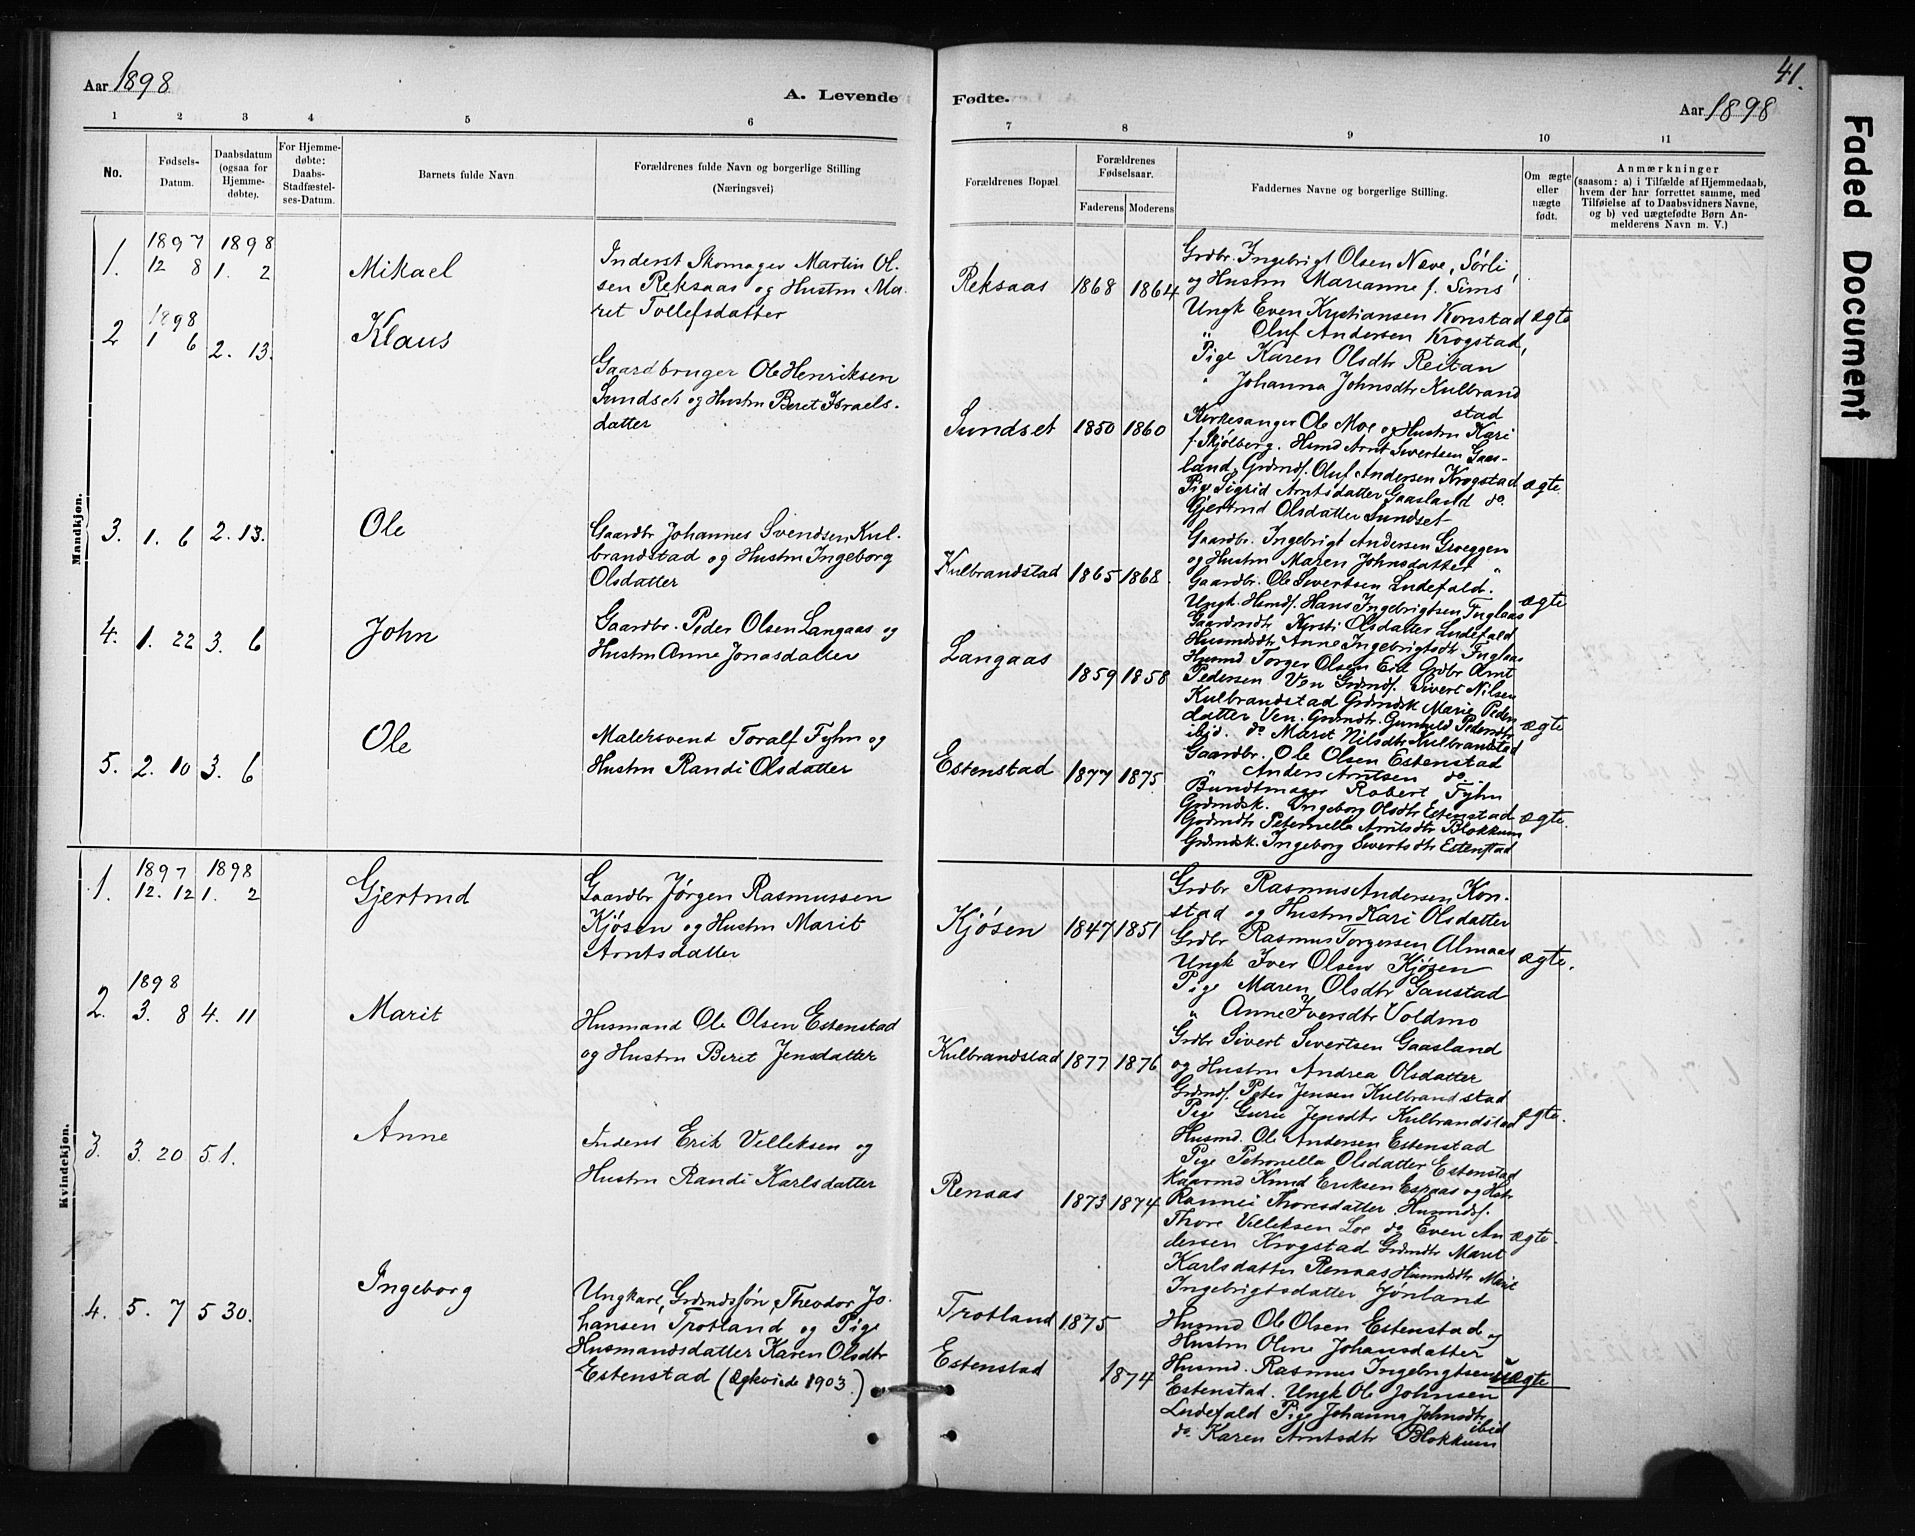 Aar 1898
A. Levende
1 2 3 4 5 6
No.
Fødsels-
Datum.
Daabsdatum
(ogsaa for
Hjemme-
døbte).
For Hjemme-
døbte:
Daabs-
Stadfæstel-
ses-Datum.
Barnets fulde Navn
Forældrenes fulde Navn og borgerlige Stilling
(Næringsvei)
Mandkjøn.
1. 1897 12 8 1898 1. 2 Mikael
Inderst Skomager Martin Ol-
sen Reksaas og Hustru Ma-
ret Tollefsdatter
2 1898 1 6 2. 13. Klaus
Gaardbruger Ole Henriksen
Sundset og Hustru Beret Israels-
datter
3. 1. 6 2. 13. Ole
Gaardbr Johannes Svendsen Kul-
brandstad og Hustru Ingeborg
Olsdatter
4. 1. 22 3. 6 John
Gaardbr. Peder Olsen Langaas og
Hustru Anne Jonasdatter
5. 2. 10 3. 6 Ole
Malersvend Toralf Fyhn og
Hustru Randi Olsdatter
Kvindekjøn.
1. 1897 12. 12 1898 1. 2 Gjertrud
Gaardbr Jørgen Rasmussen
Kjøsen og Hustru Marit
Arntsdatter
2. 1898 3. 8 4. 11 Marit
Husmand Ole Olsen Estenstad
og Hustru Beret Jensdatter
3. 3. 20 5 1. Anne
Inderst Erik Velleksen og
Hustru Randi Karlsdatter
4. 5. 7 5 30. Ingeborg
Ungkarl, Grdmdssøn Theodor Jo-
hansen Trotland og Pige
Husmandsdatter Karen Olsdtr
Estenstad (Ægteviede 1903.)
41.
Fødte.
Aar 1898
7 8 9 10 11
Forældrenes Bopæl
Forældrenes
Fødselsaar.
Faderens Moderens
Faddernes Navne og borgerlige Stilling.
Om ægte
eller
uægte
født.
Anmærkninger
(saasom: a) i Tilfælde af Hjemmedaab,
hvem der har forrettet samme, med
Tilføielse af to Daabsvidners Navne,
og b) ved uægtefødte Børn An-
melderens Navn m. V.)
Reksaas 1868 1864
Grdbr. Ingebrigt Olsen Næve, Sørli,
og Hustru Marianne f. Sims
Ungk Even Kristiansen Konstad ægte
" Oluf Andersen Krogstad,
Pige Karen Olsdtr Reitan
" Johanna Johnsdtr Kulbrand
stad
Sundset 1850 1860
Kirkesanger Ole Moe og Hustru Kari
f. Skjølberg. Husmd Arnt Sivertsen Gaas-
land, Grdmds. Oluf Andersen Krogstad ægte.
Pige Sigrid Arntsdatter Gaasland do.
Gjertrud Olsdatter Sundset
Kulbrandstad 1865 1868.
Gaardbr. Ingebrigt Andersen Groeggen
og Hustru Maren Johnsdatter "
Gaardbr. Ole Sivertsen Ludefald.
Ungk. Husmds. Hans Ingebrigtsen Fuglaas ægte
Gaardmdtr Kirsti Olsdatter Ludefald
Husmdsdtr Anne Ingebrigtsdtr Fuglaas
Langaas 1859 1858
Husmd Torger Olsen Eid Grdbr Arnt
Pedersen Ven Grdmds. Sivert Nilsen
Kulbrandstad Grdmdsk Marie Peders
datter Ven. Grdmdtr. Gunhild Pedersdtr ægte
ibid. do Marit Nilsdtr Kulbrandstad
Estenstad 1877 1875
Gaardbr. Ole Olsen Estenstad
" Anders Arntsen do.
Bundtmager Robert Fyhn
Grdmdsk. Ingeborg Olsdtr Estenstad ægte.
Grdmdtr Peternella Arntsdtr Blokkum
Grdmdsk. Ingeborg Sivertsdtr Estenstad
Kjøsen 1847 1851
Grdbr Rasmus Andersen Kon-
stad og Hustru Kari Olsdatter
Grdbr Rasmus Torgersen Almaas ægte.
Ungk Iver Olsen Kjøsen
Pige Maren Olsdtr Gaustad
" Anne Iversdtr Voldmo
Kulbrandstad 1877 1876
Grdbr Sivert Sivertsen Gaasland
og Hustru Andrea Olsdatter
Grdmds. Peter Jensen Kulbrandstad
Pige Guru Jensdtr Kulbrandstad ægte.
Husmd. Ole Andersen Estenstad
Pige Petronella Olsdatter Estenstad
Renaas 1873 1874
Kaarmd Knud Eriksen Espaas og Hstr
Rannei Thoresdatter Husmds.
Thore Velleksen Loe do Even An ægte.
dersen Krogstad Grdmdtr Marit
Karlsdatter Renaas Husmdsdtr Marit
Ingebrigtsdatter Jønland
Trotland 1875
Estenstad 1874
Husmd Ole Olsen Estenstad og
Hustru Oline Johansdatter
Husmd. Rasmus Ingebrigtsen uægte
Estenstad. Ungk Ole Johnsen
Ludefald Pige Johanna Johnsdtr
ibid
do Karen Arntsdtr Blokkum
Faded Document